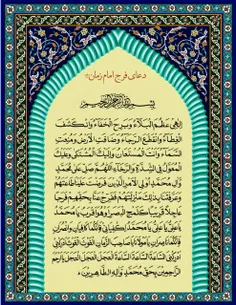 دعای فرج امام زمان
بسم الله الرحمن الرحیم
اِلهی عَظُمَ الْبَلاءُ وَبَرِحَ الْخَفاءُ وَانْکَشَفَ
الْغِطاءُ وَانْقَطَعَ الرَّجاءُ وَضاقَتِ الْاَرْضُ وَمُنِعَتِ
السَّماءُ وَاَنْتَ الْمُسْتَعانُ وَاِلَیْکَ الْمُشْتَکی وَعَلَیْکَ
الْمُعَوَّلُ فِی الشِّدَّةِ وَالرَّخاءِ اَللّهُمَّ صَلِّ عَلی مُحَمَّدٍ
وَآلِ مُحَمَّدٍ اُولِی الْاَمْرِ الَّذینَ فَرَضْتَ عَلَیْنا طاعَتَهُمْ
وَعَرَّفْتَنا بِذلِکَ مَنْزِلَتَهُمْ فَفَرِّجْ عَنّا بِحَقِّهِمْ فَرَجاً
عاجِلاً قَریباً کَلَمْحِ الْبَصَرِ اَوْ هُوَ اَقْرَبُ یا مُحَمَّدُ
یا عَلِیُّ یا عَلِیُّ یا مُحَمَّدُ اِکْفِیانی فَاِنَّکُما کافِیانِ وَانْصُرانی
فَاِنَّکُما ناصِرانِ یا مَوْلانا یا صاحِبَ الزَّمانِ الْغَوْثَ الْغَوْثَ الْغَوْثَ اَدْرِکْنی
اَدْرِکْنی اَدْرِکْنی السّاعَةَ السّاعَةَ السّاعَةَ الْعَجَلَ الْعَجَلَ الْعَجَلَ یا اَرْحَمَ
الرّاحِمینَ بِحَقِّ مُحَمَّدٍ وَآلِهِ الطّاهِرینَ